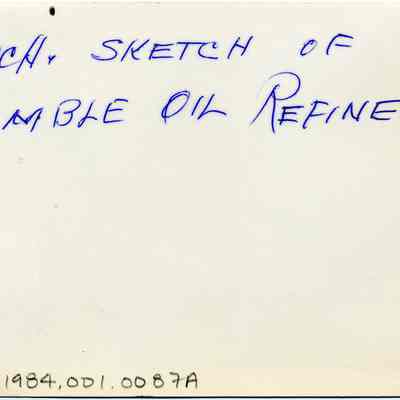 CH. SKETCH OF
MBLE OIL REFINE
1984.001.0087A